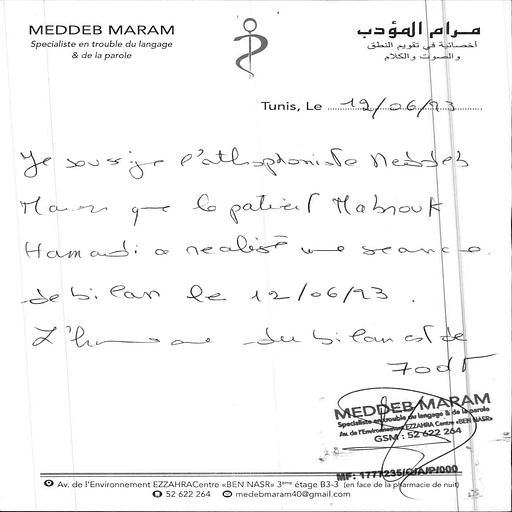 MEDDEB MARAM
Specialiste en trouble du langage
& de la parole
مرام المؤدب
أخصائية في تقويم النطق
والصوت والكلام
Tunis, Le 12/06/23
Je soussigne l'orthophoniste Meddeb
Maram que le patient Mabrouk
Hamadi a realisé une seance
de bilan le 12/06/23.
L'honoraire du bilan est de
70dt
MEDDEB MARAM
Specialiste en trouble du langage & de la parole
Av. de l'Environnement EZZAHRA Centre «BEN NASR»
GSM : 52 622 264
MF: 1777235/ /A/P/000
Av. de l'Environnement EZZAHRACentre «BEN NASR» 3ème étage B3-3 (en face de la pharmacie de nuit)
52 622 264 medebmaram40@gmail.com